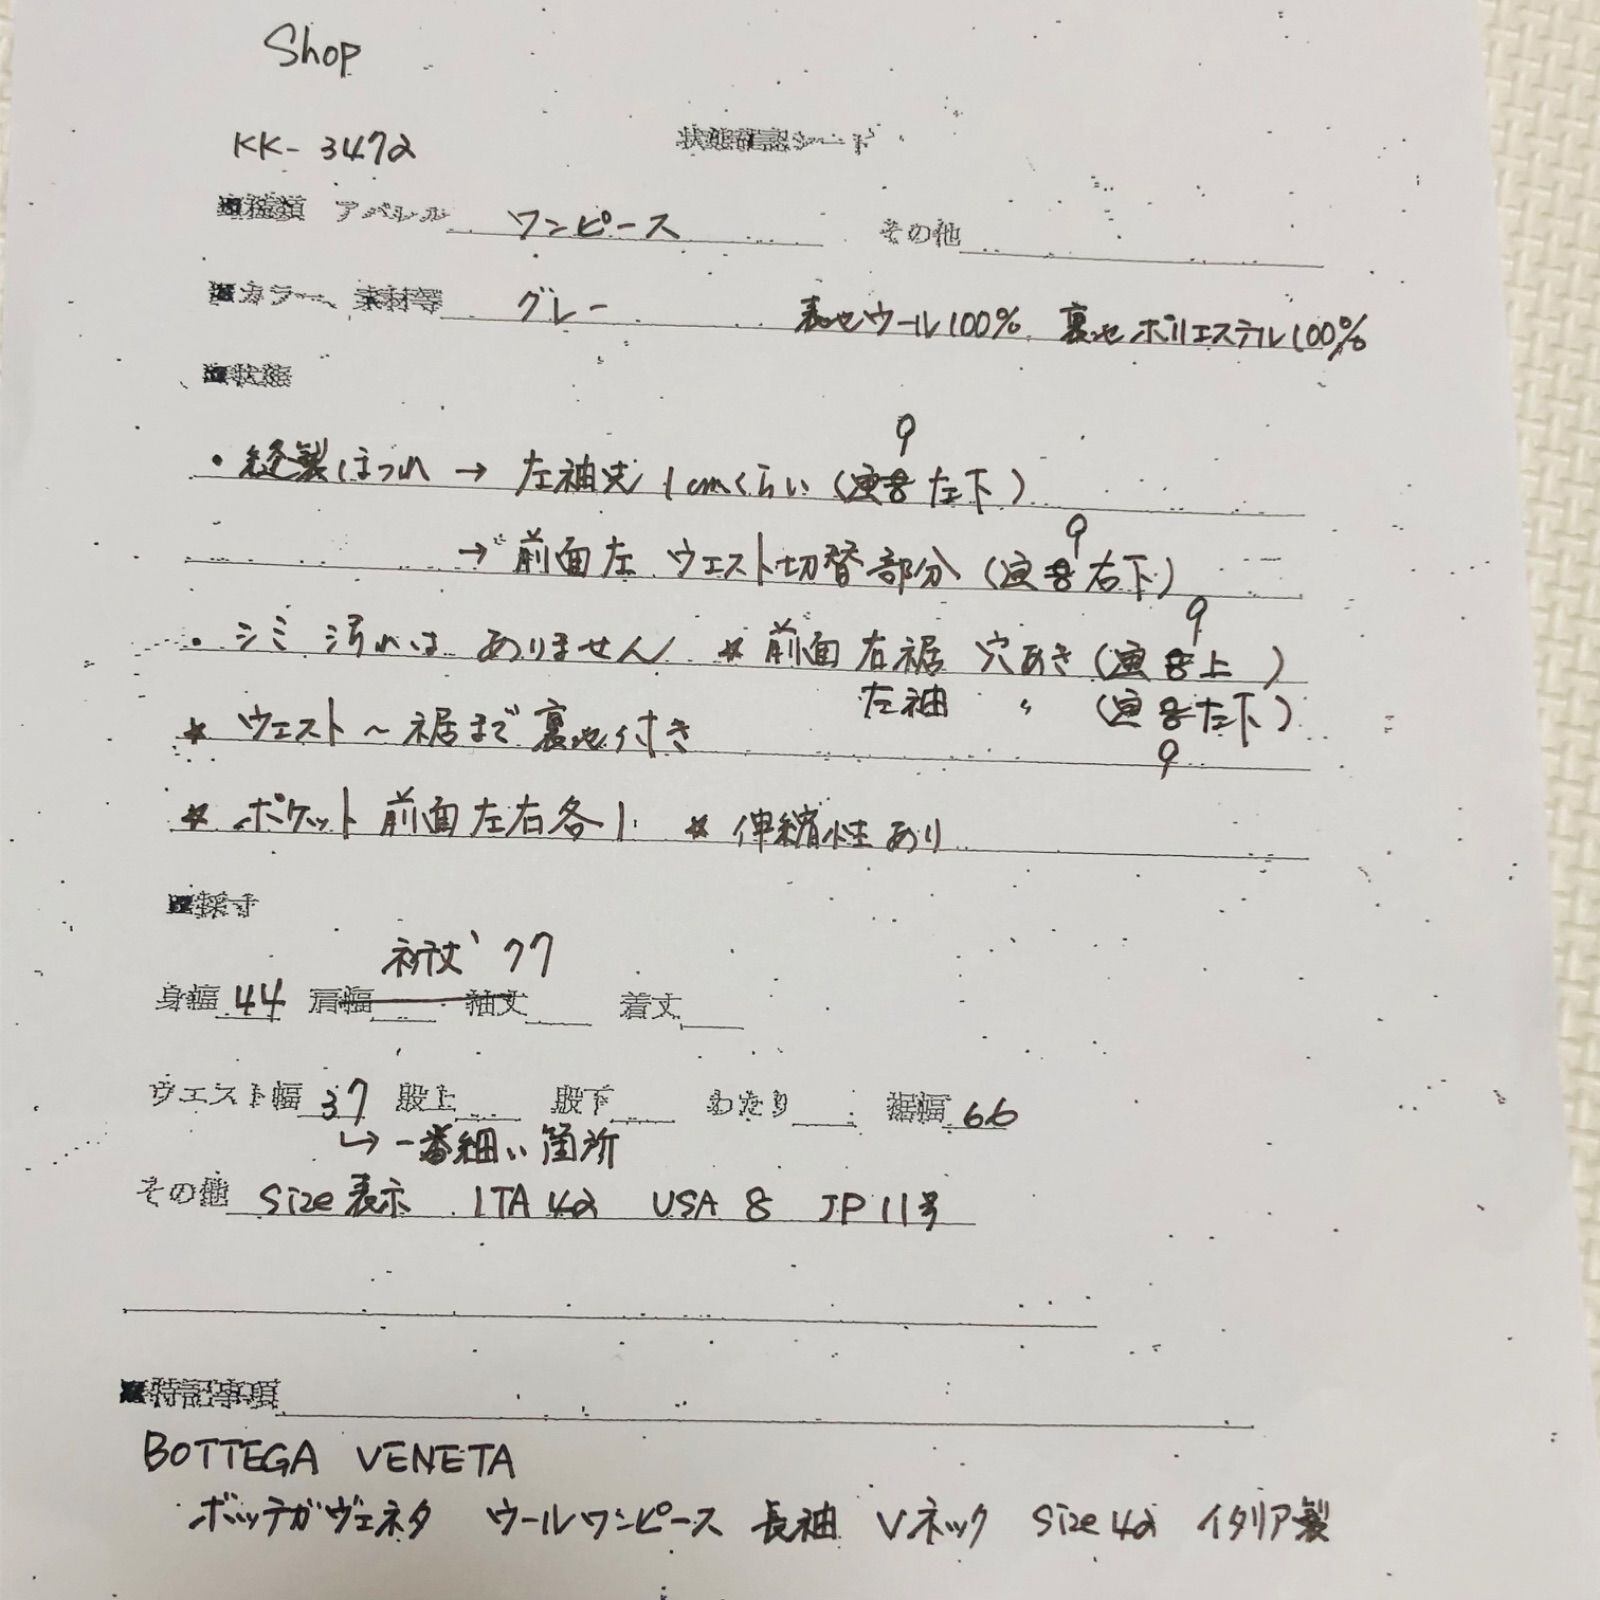 Shop
KK-3472 状態確認シート
■種類 アパレル ワンピース その他
■カラー、素材等 グレー 表地ウール100% 裏地ポリエステル100%
■状態
9
・縫製ほつれ → 左袖先 1cmくらい (画8左下)
9
→ 前面左 ウエスト切替部分 (画8右下)
9
・シミ 汚れは ありません ★ 前面右裾 穴あき (画8上)
左袖 〃 (画8左下)
★ ウエスト〜裾まで裏地付き
9
★ ポケット前面左右各1 ★ 伸縮性あり
■採寸
裄丈 77
身幅 44 肩幅 袖丈 着丈
ウエスト幅 37 股上 股下 わたり 裾幅 66
↳ 一番細い箇所
その他 size表示 ITA42 USA 8 JP11号
■特記事項
BOTTEGA VENETA
ボッテガヴェネタ ウールワンピース 長袖 Vネック size42 イタリア製